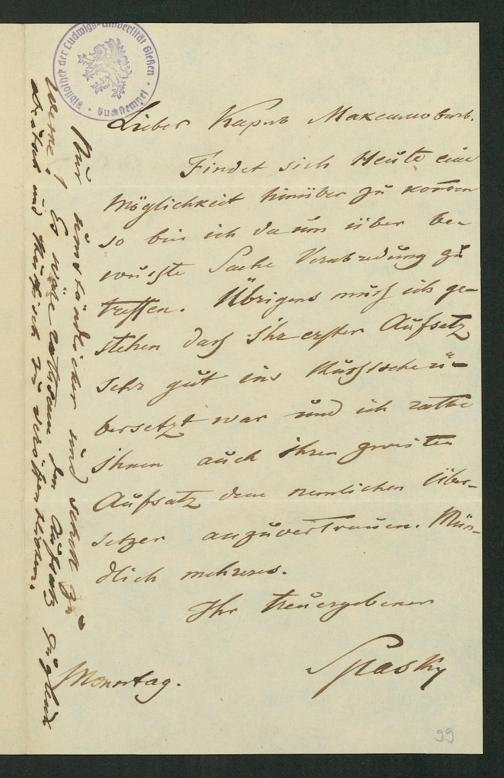 Bibliothek der Ludwigs-Universität Gießen
Buchstempel
Lieber Карлъ Максимовичъ.
Findet sich Heute eine
Möglichkeit hinüber zu kommen
so bin ich da um über be-
wußte Sache Verabredung zu
treffen. Übrigens muß ich ge-
stehen daß Ihr erster Aufsatz
sehr gut ins Russische ü-
bersetzt war und ich rathe
Ihnen auch Ihren zweiten
Aufsatz dem nemlichen Über-
setzer anzuvertrauen. Mün-
dlich mehreres.
Ihr treuergebener
Spasky
Monntag.
Nur umständlicher und schön zu
Es wäre rathsam den Aufsatz
deutsch und Russisch zu
99